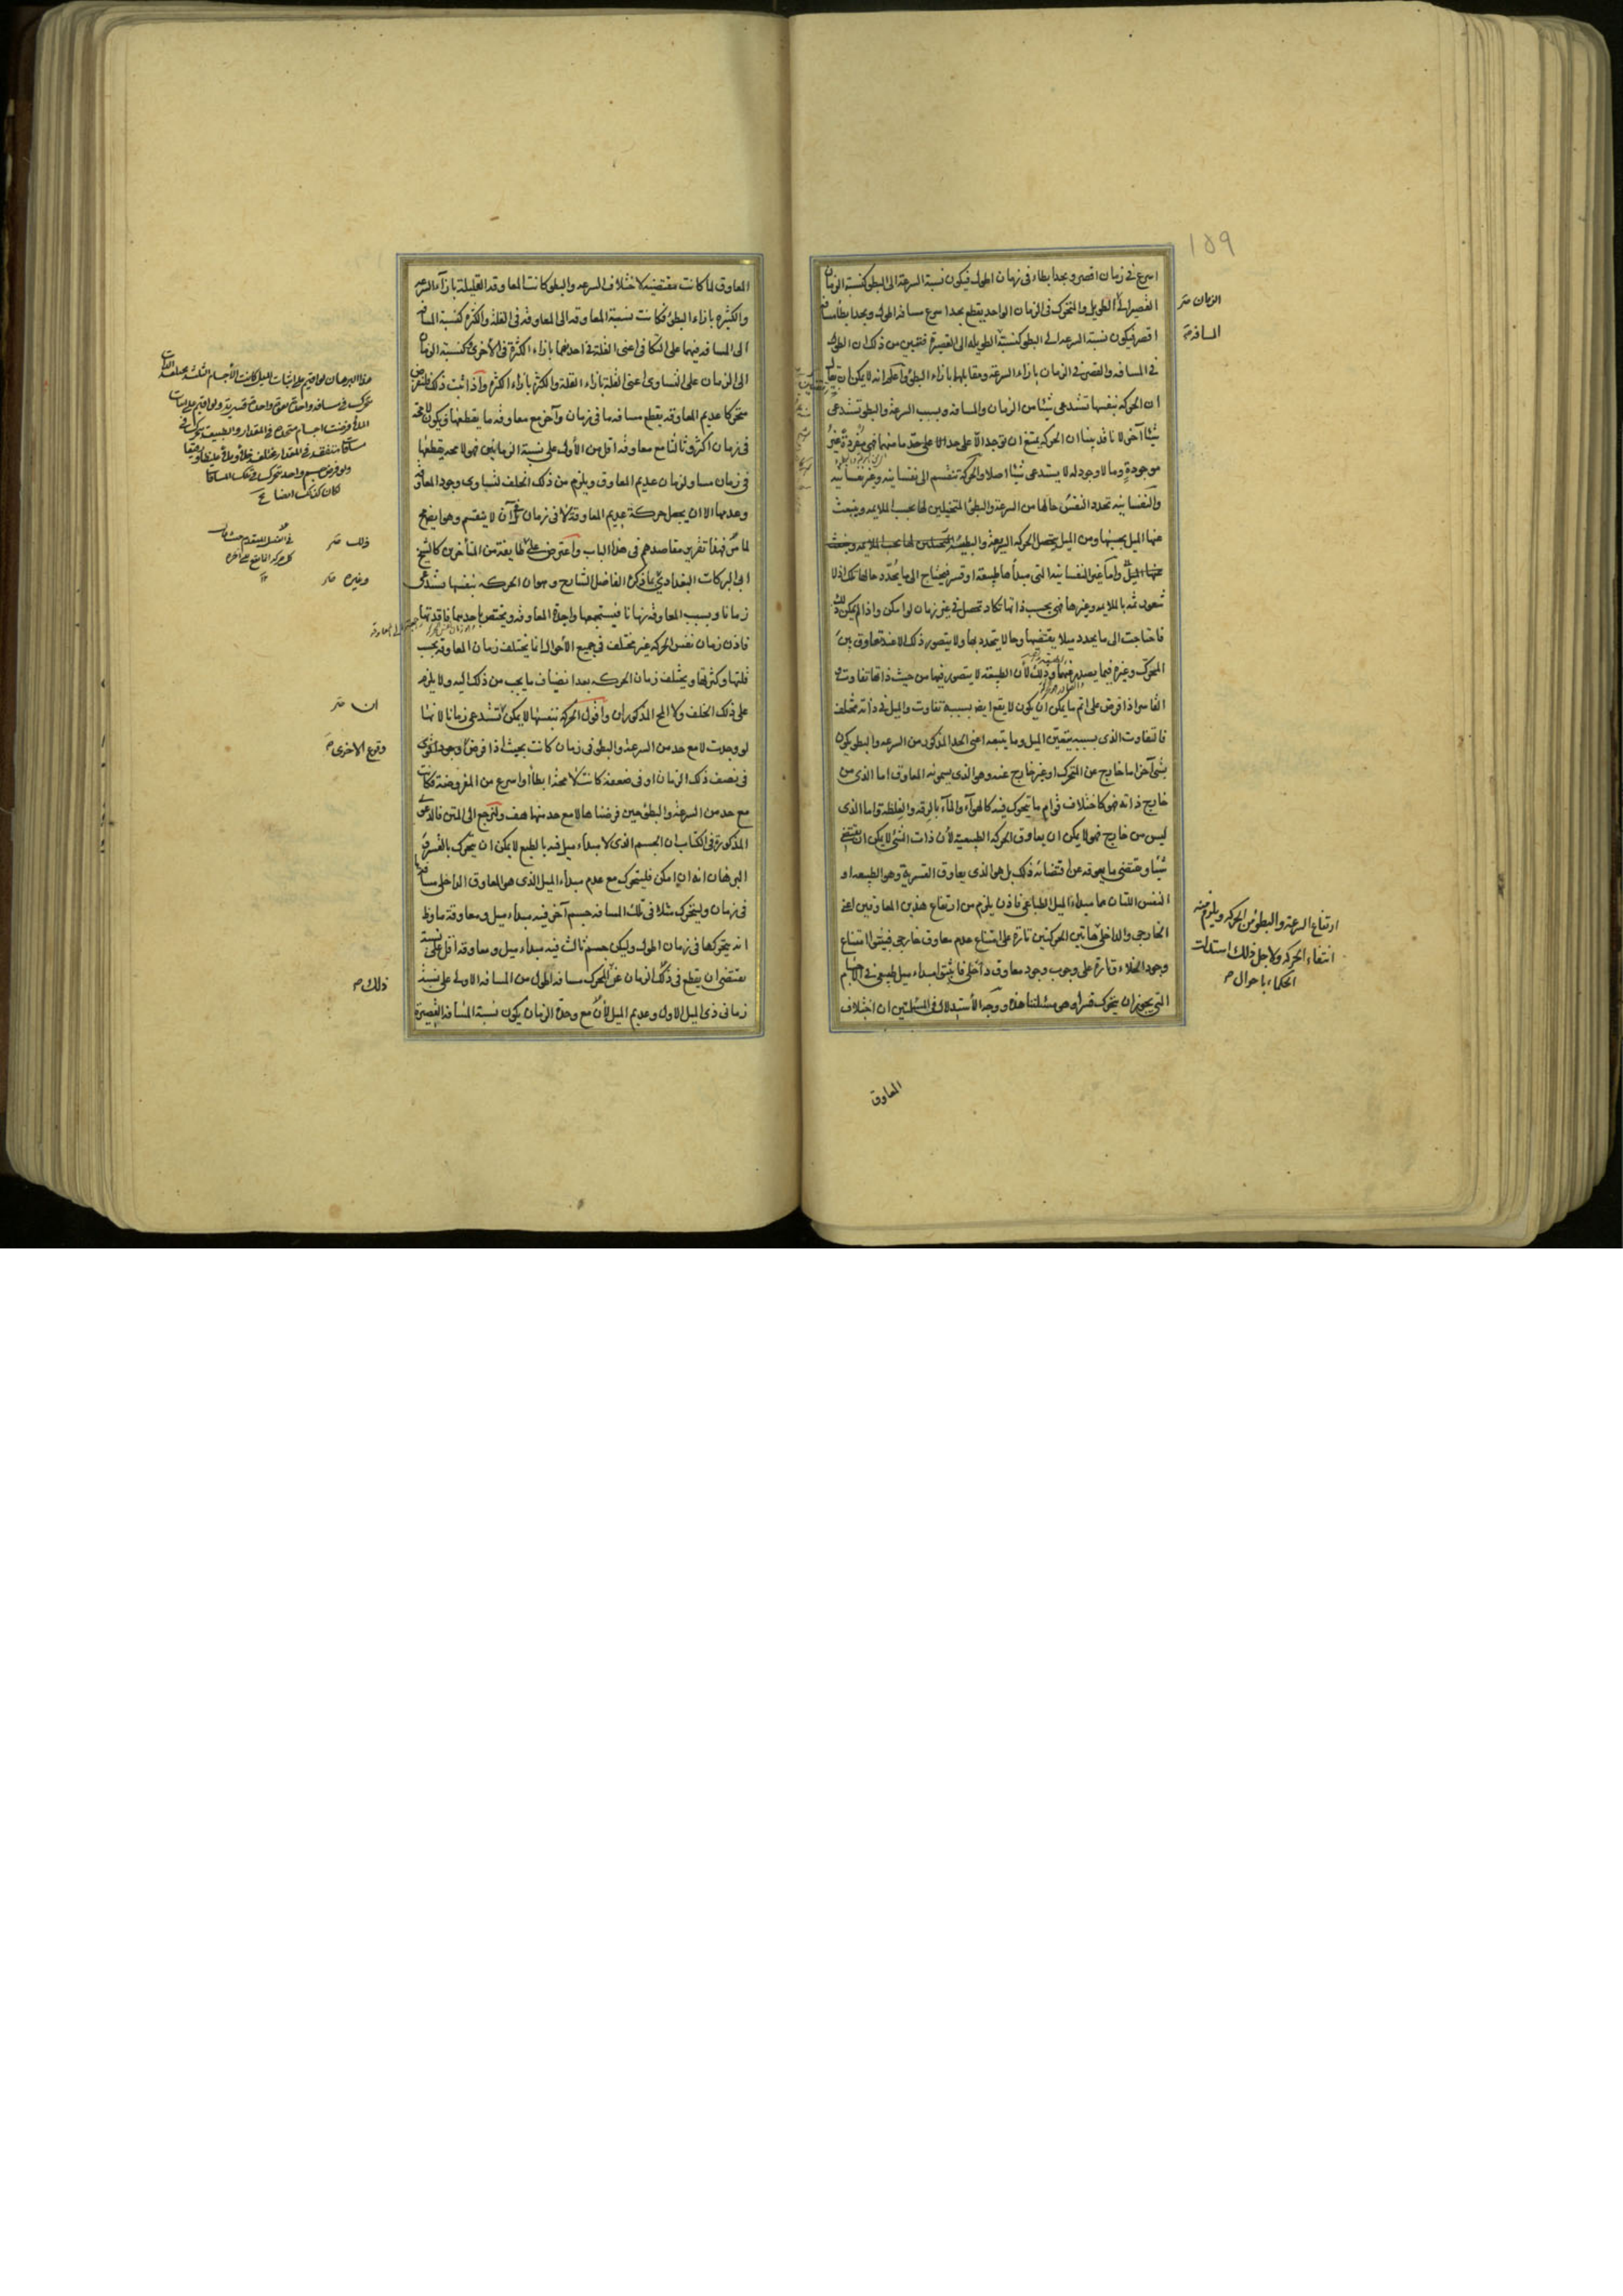 ١٥٩
اسرع فى زمان اقصر وبحد ابطاء فى زمان اطول فيكون نسبة السرعة الى البطؤ كنسبة الزمان
القصير الى الطويل والمتحرك فى الزمان الواحد يقطع بحد اسرع مسافة اطول وبحد ابطأ مسافة
اقصر فيكون نسبة السرعة الى البطؤ كنسبة الطويلة الى القصيرة فتبين من ذلك ان الطول
فى المسافة والقصر فى الزمان بازاء السرعة ومقابلهما بازاء البطؤ واعلم انه لا يمكن ان يقال
ان الحركة بنفسها تستدعى شيئا من الزمان والمسافة وبسبب السرعة والبطؤ تستدعى
شيئا آخر لانا قد بينا ان الحركة يمتنع ان توجد الا على حد ما منهما فهى مفردة غير
موجودة وما لا وجود له لا يستدعى شيئا اصلا والحركة تنقسم الى نفسانية وغير نفسانية
والنفسانية تحدد النفس حالها من السرعة والبطؤ المتخيلين لها بحسب الملايمة وينبعث
عنها الميل بحسبها ومن الميل يتحصل الحركة السريعة والبطيئة
واما غير النفسانية التى مبدأها طبيعة او قسر فيحتاج الى ما يحدد حالها تلك اذ لا
شعور ثمة بالملايمة وغيرها فهى بحسب ذاتها تكاد تحصل فى غير زمان لو امكن واذ لم يمكن ذلك
فاحتاجت الى ما يحدد ميلا يقتضيها وحالا يتحدد بها ولا يتصور ذلك الا عند تعاوق بين
المحرك وغيره فيما يصدر عنهما وذلك لأن الطبيعة لا يتصور فيها من حيث ذاتها تفاوت و
القاسر اذا فرض على اتم ما يمكن ان يكون لا يقع ايضا بسببه تفاوت والميل فى ذاته مختلف
فالتفاوت الذى بسببه يتعين الميل وما يتبعه اعنى الحد المذكور من السرعة والبطؤ يكون
بشئ آخر اما خارج عن المتحرك او غير خارج عنه وهو الذى يسمونه المعاوق اما الذى من
خارج ذاته فهو كاختلاف قوام ما يتحرك فيه كالهوآء والمآء بالرقة والغلظة واما الذى
ليس من خارج فهو لا يمكن ان يعاوق الحركة الطبيعية لأن ذات الشئ لا يمكن ان يقتضى
شيئا ويقتضى ما يعوقه عن اقتضائه ذلك بل هو الذى يعاوق القسرية وهو الطبيعة او
النفس اللتان هما مبداء الميل الطباعى فاذن يلزم من ارتفاع هذين المعاوقين اعنى
الخارجى والداخلى هاتين الحركتين تارة على امتناع عدم معاوق خارجى فبينوا امتناع
وجود الخلاء وتارة على وجوب وجود معاوق داخلى فاثبتوا مبداء ميل طبيعى فى الاجسام
التى يجوز ان يتحرك قسرا وهى مسئلتنا هذه ووجه الأستدلال فى المسئلتين ان اختلاف
الزمان
المسافة
ارتفاع السرعة والبطؤ من الحركة ويلزم منه
انتفاء الحركة ولاجل ذلك استدلت
الحكماء باحوال
المعاوق
المعاوق لما كانت مقتضية لاختلاف السرعة والبطؤ كانت المعاوقة القليلة بازآء السرعة
والكثيرة بازاء البطؤ فكانت نسبة المعاوقة الى المعاوقة فى القلة والكثرة كنسبة المسافة
الى المسافة فيهما على التكافى اعنى القلة فى احديهما بازاء الكثرة فى الأخرى وكنسبة الزمان
الى الزمان على التساوى اعنى القلة بازاء القلة والكثرة بازاء الكثرة واذا ثبت ذلك فلنفرض
متحركا عديم المعاوقة يقطع مسافة ما فى زمان وآخر مع معاوقة ما يقطعها ويكون لا محة
فى زمان اكثر وثالثا مع معاوقة اقل من الأول على نسبة الزمانين فهو لا محة يقطعها
فى زمان مساو لزمان عديم المعاوق ويلزم من ذلك الخلف لتساوى وجود المعاوقة
وعدمها الا ان يجعل حركة عديم المعاوقة لا فى زمان بل فى آن لا ينقسم وهو ايضا مح
لما مر فهذا تقرير مقاصدهم فى هذا الباب واعترض عليه طايفة من المتأخرين كالشيخ
ابى البركات البغدادى ما ذكره الفاضل الشارح وهو ان الحركة بنفسها تستدعى
زمانا وبسبب المعاوقة زمانا فيستجمعهما واجدة المعاوقة ويختص باحديهما فاقدتها
فاذن زمان نفس الحركة غير مختلف فى جميع الأحوال انما يختلف زمان المعاوقة بحسب
قلتها وكثرتها ويختلف زمان الحركة بعد انضياف ما يجب من ذلك اليه ولا يلزم
على ذلك الخلف ولا المح المذكوران واقول الحركة بنفسها لا يمكن تستدعى زمانا لانها
لو وجدت لا مع حد من السرعة والبطؤ فى زمان كانت بحيث اذا فرض وجود اخرى
فى نصف ذلك الزمان او فى ضعفه كانت لا محة ابطأ او اسرع من المفروضة فكانت
مع حد من السرعة والبطؤ حين فرضناها لا مع حد منهما هف ولنرجع الى المتن فالدعوى
المذكورة فى الكتاب ان الجسم الذى لا مبداء ميل فيه بالطبع لا يمكن ان يتحرك بالقسر و
البرهان انه ان امكن فليتحرك مع عدم مبداء الميل الذى هو المعاوق الداخلى مسافة ما
فى زمان وليتحرك مثلا فى تلك المسافة جسم آخر فيه مبداء ميل ومعاوقة ما وظ
انه يتحركها فى زمان اطول وليكن جسم ثالث فيه مبداء ميل ومعاوقة اقل على نسبة
يقتضى ان يقطع فى ذلك الزمان عن المحرك مسافة اطول من المسافة الاولى على نسبة
زمانى ذى الميل الاول وعديم الميل لأن مع وحدة الزمان يكون نسبة المسافة القصيرة
ذلك
وغيره
ان
وقوع الاخرى
ذلك